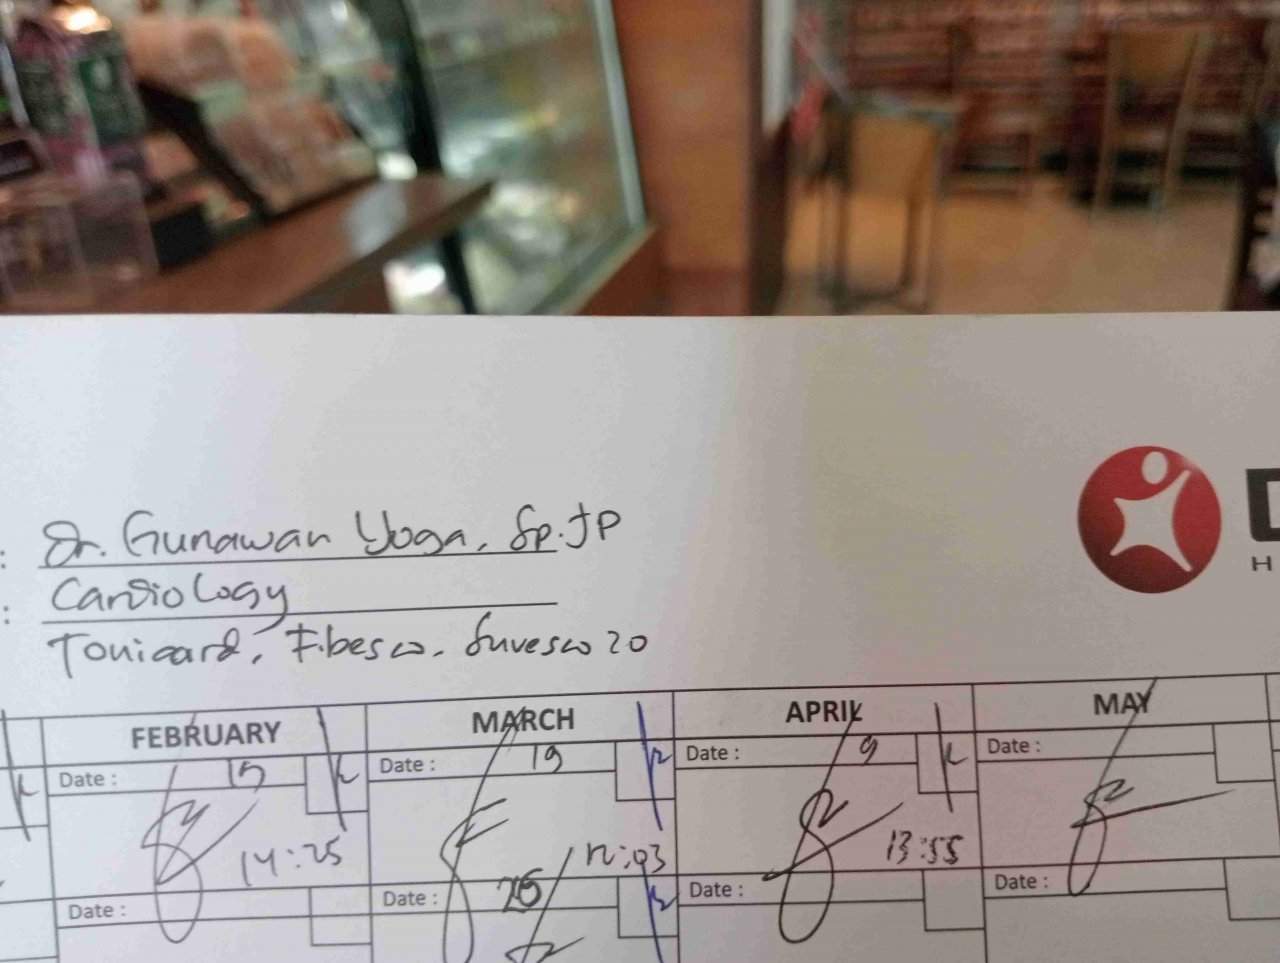 : Dr. Gunawan Yoga, Sp.JP
: Cardiology
Tonicard, Fibesco, Suvesco 20
D
H
FEBRUARY MARCH APRIL MAY
Date : 15 Date : 19 Date : 9 Date :
14:25 12:03 13:55
Date : Date : 26 Date : Date :